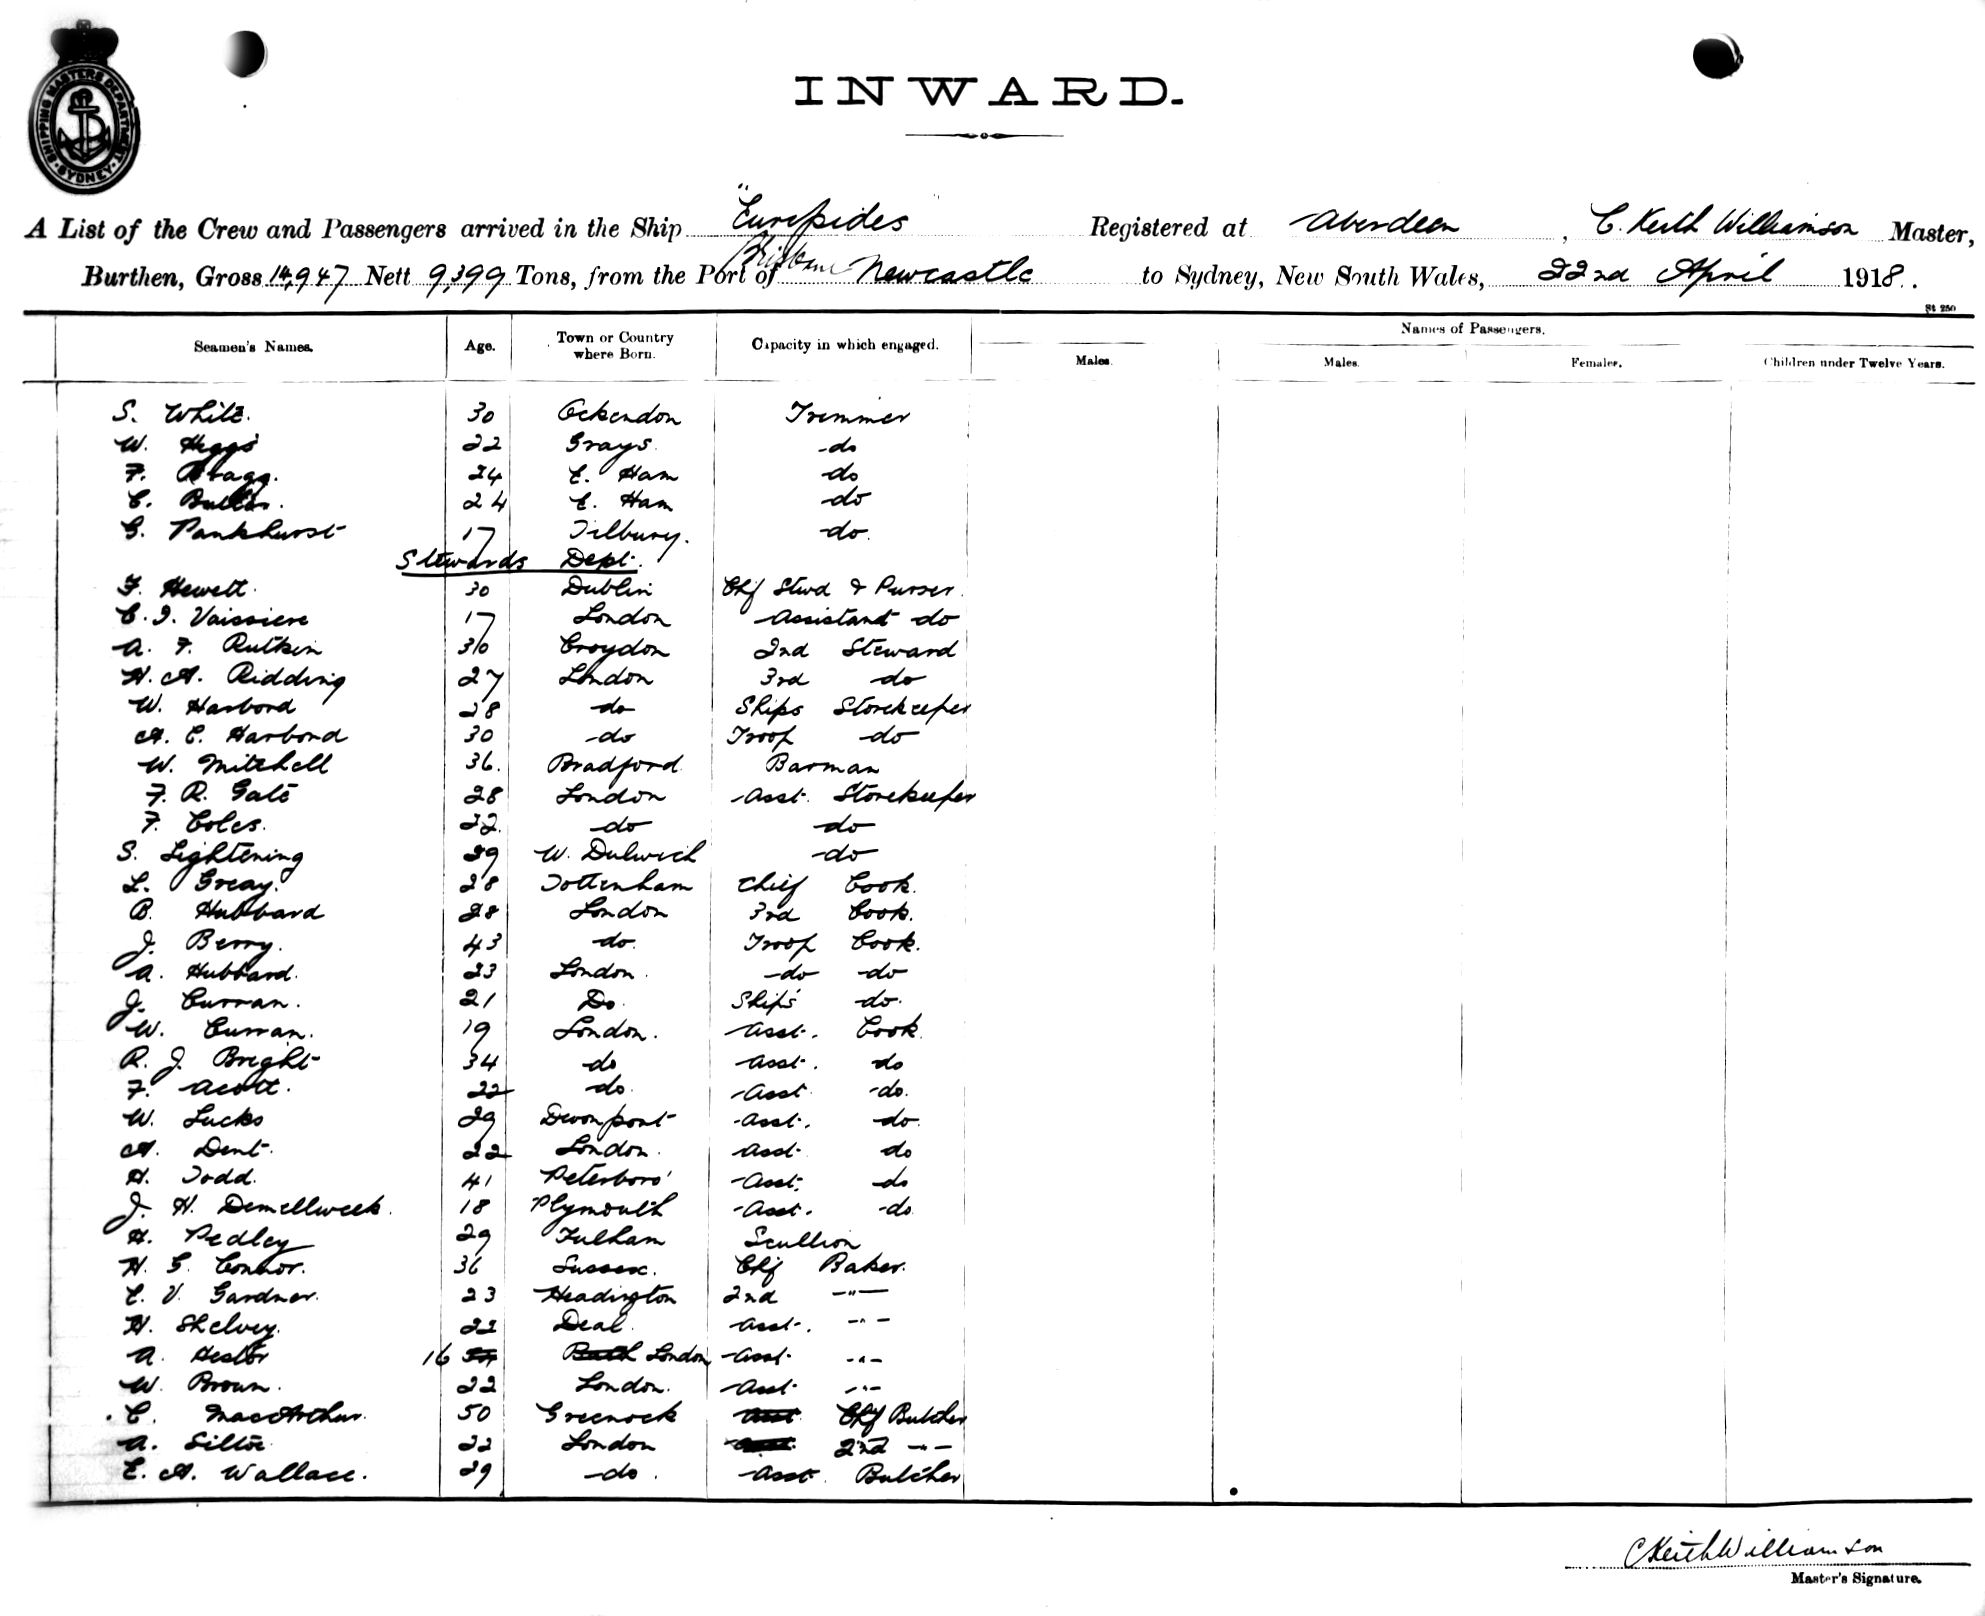 SHIPPING MASTERS DEPARTMENT SYDNEY
INWARD.
A List of the Crew and Passengers arrived in the Ship "Euripides" Registered at Aberdeen, C. Keith Williamson Master,
Burthen, Gross 14,947 Nett 9,399 Tons, from the Port of Brisbane Newcastle to Sydney, New South Wales, 22nd April 1918.
St 250
Seamen's Names. Age. Town or Country where Born. Capacity in which engaged. Names of Passengers.
Males. Males. Females. Children under Twelve Years.
S. White. 30 Ockendon Trimmer
W. Higgs 22 Grays. do
F. Bragg. 24 E. Ham do
C. Butler. 24 E. Ham do
G. Pankhurst 17 Tilbury. do.
Stewards Dept.
F. Hewett. 30 Dublin Chf Stwd & Purser.
C. I. Vaissiere 17 London Assistant do
A. F. Rutkin 30 Croydon 2nd Steward
H. A. Ridding 27 London 3rd do
W. Harbord 28 do Ships Storekeeper
A. E. Harbord 30 do Troop do
W. Mitchell 36. Bradford Barman
F. R. Gate 28 London Asst. Storekeeper
F. Coles. 22. do do
S. Lightening 29 W. Dulwich do
L. Greay. 28 Tottenham Chief Cook.
B. Hubbard 28 London 3rd Cook.
J. Berry. 43 do. Troop Cook.
A. Hubbard. 23 London. do do
J. Curran. 21 Do. Ship's do.
W. Curran. 19 London. Asst. Cook
R. J. Bright 34 do Asst. do
F. Acott. 22 do. Asst do.
W. Lucks 29 Devonport Asst. do.
A. Dent. 22 London. Asst. do
H. Todd. 41 Peterboro' Asst. do
J. H. Demellweek. 18 Plymouth Asst. do.
H. Pedley 29 Fulham Scullion
H. G. Connor. 36 Sussex. Chf Baker.
E. V. Gardner. 23 Headington 2nd -"-
H. Shelvey. 22 Deal. Asst. -"-
A. Hestor 16 Bath London Asst. -"-
W. Brown. 22 London. Asst. -"-
C. MacArthur. 50 Greenock Asst Chf Butcher
A. Siltoe 22 London Asst. 2nd -"-
E. A. Wallace. 29 do. Asst. Butcher
C Keith Williamson
Master's Signature.